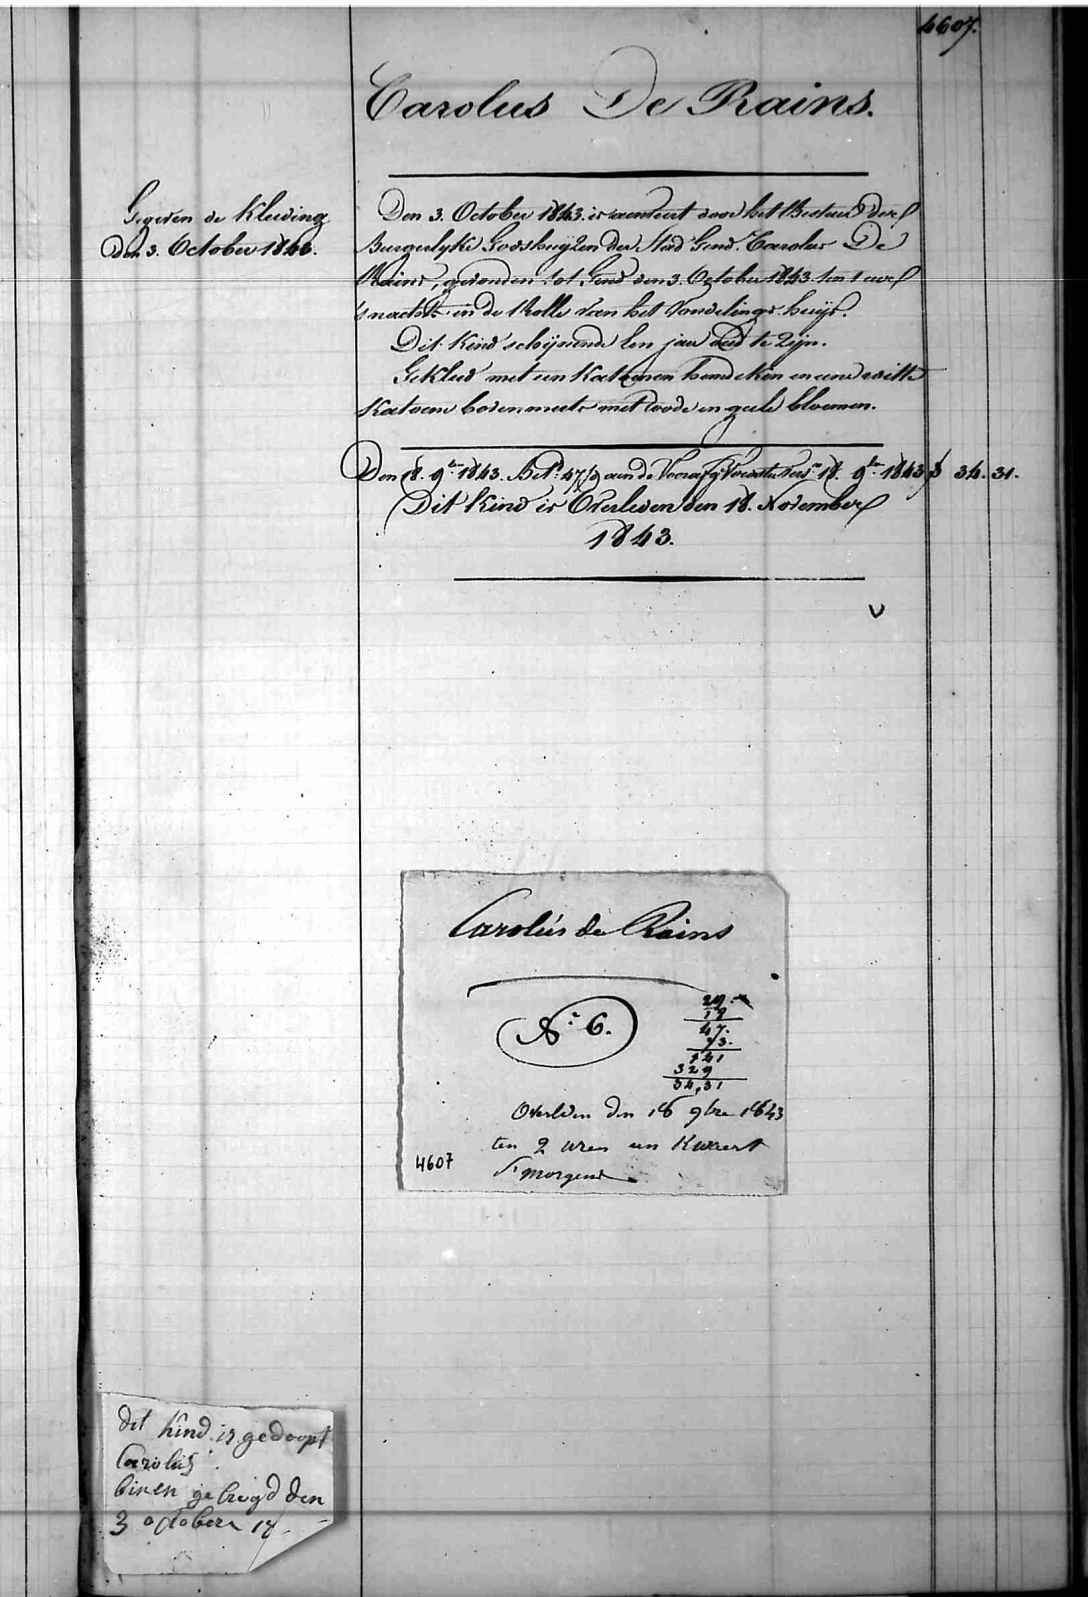 4607.
Carolus De Rains.
Gegeven de Kleeding
Den 3. October 1843.
Den 3. October 1843. is aenveert door het Bestuer der
Burgerlyke Godshuyzen der Stad Gend. Carolus De
Rains, gevonden tot Gend den 3. October 1843. ten 1 uer
'snachts in de Rolle van het Vondelings huys.
Dit Kind schynende een jaer oud te Zyn.
Gekleed met een Katoenen hemdeken en eene witte
Katoene bovenmuts met roode en geele bloemen.
Den 18. 9bre 1843. Bet. 47/9 aen de 18. 9bre 1843 34. 31.
Dit Kind is Overleden den 18. November
1843.
Carolus de Rains
N° 6.
29.
18
47.
73.
141
329
34,31
Overleden den 18 9bre 1843
ten 2 uren een Kwaert
S'morgens
4607
dit kind is gedoopt
Carolus
binen gebregd den
3 october 18